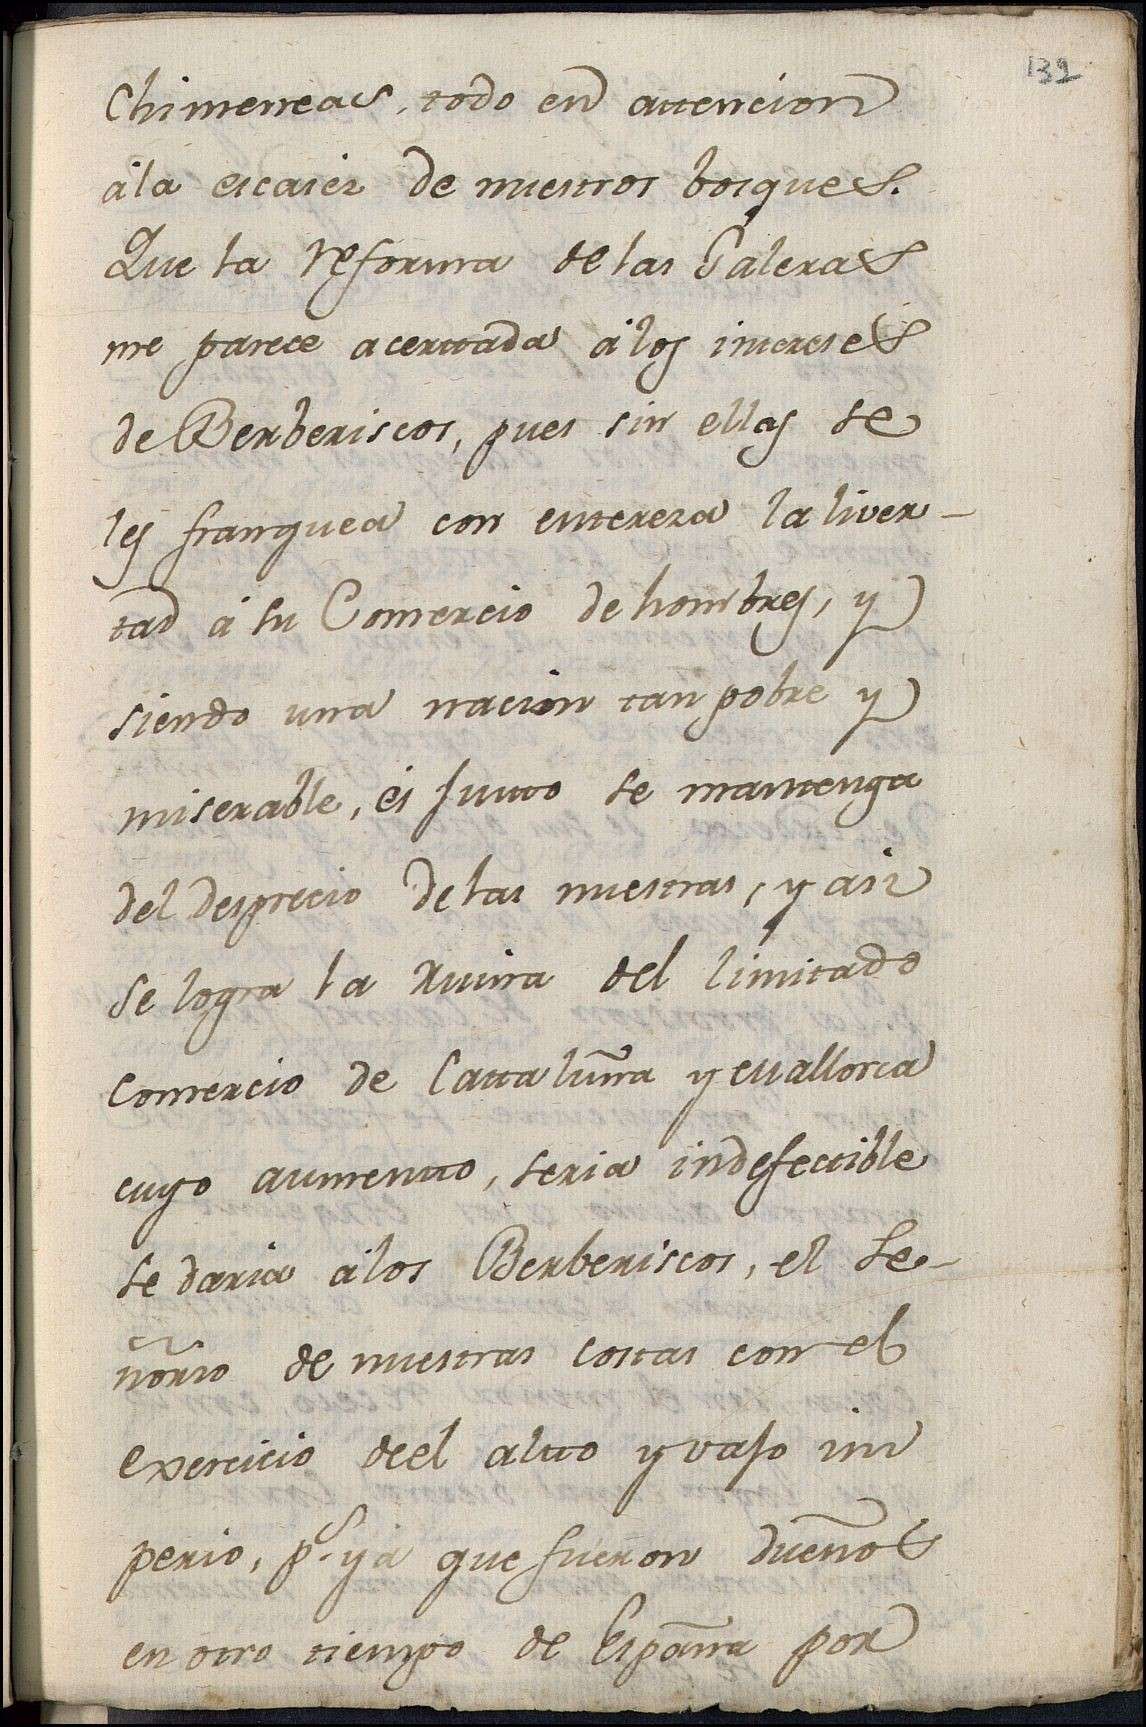 132
Chimeneas, todo en attencion
á la escaséz de nuestros bosques.
Que la reforma de las Galeras
me parece acerttada á los intereses
de Berberiscos, pues sin ellas se
les franquea con entereza la liver-
tad á su Comercio de hombres, y
siendo una nacion tan pobre y
miserable, és justto se mantenga
del desprecio de las nuestras, y asi
se logra la ruina del limitado
Comercio de Catta luña y Mallorca
cuyo aumentto, seria indefecttible
se daria á los Berberiscos, el se-
ñorio de nuestras costas con el
exercicio deel altto y vajo im
perio, ps. yá que fueron dueños
en otro tiempo de España por